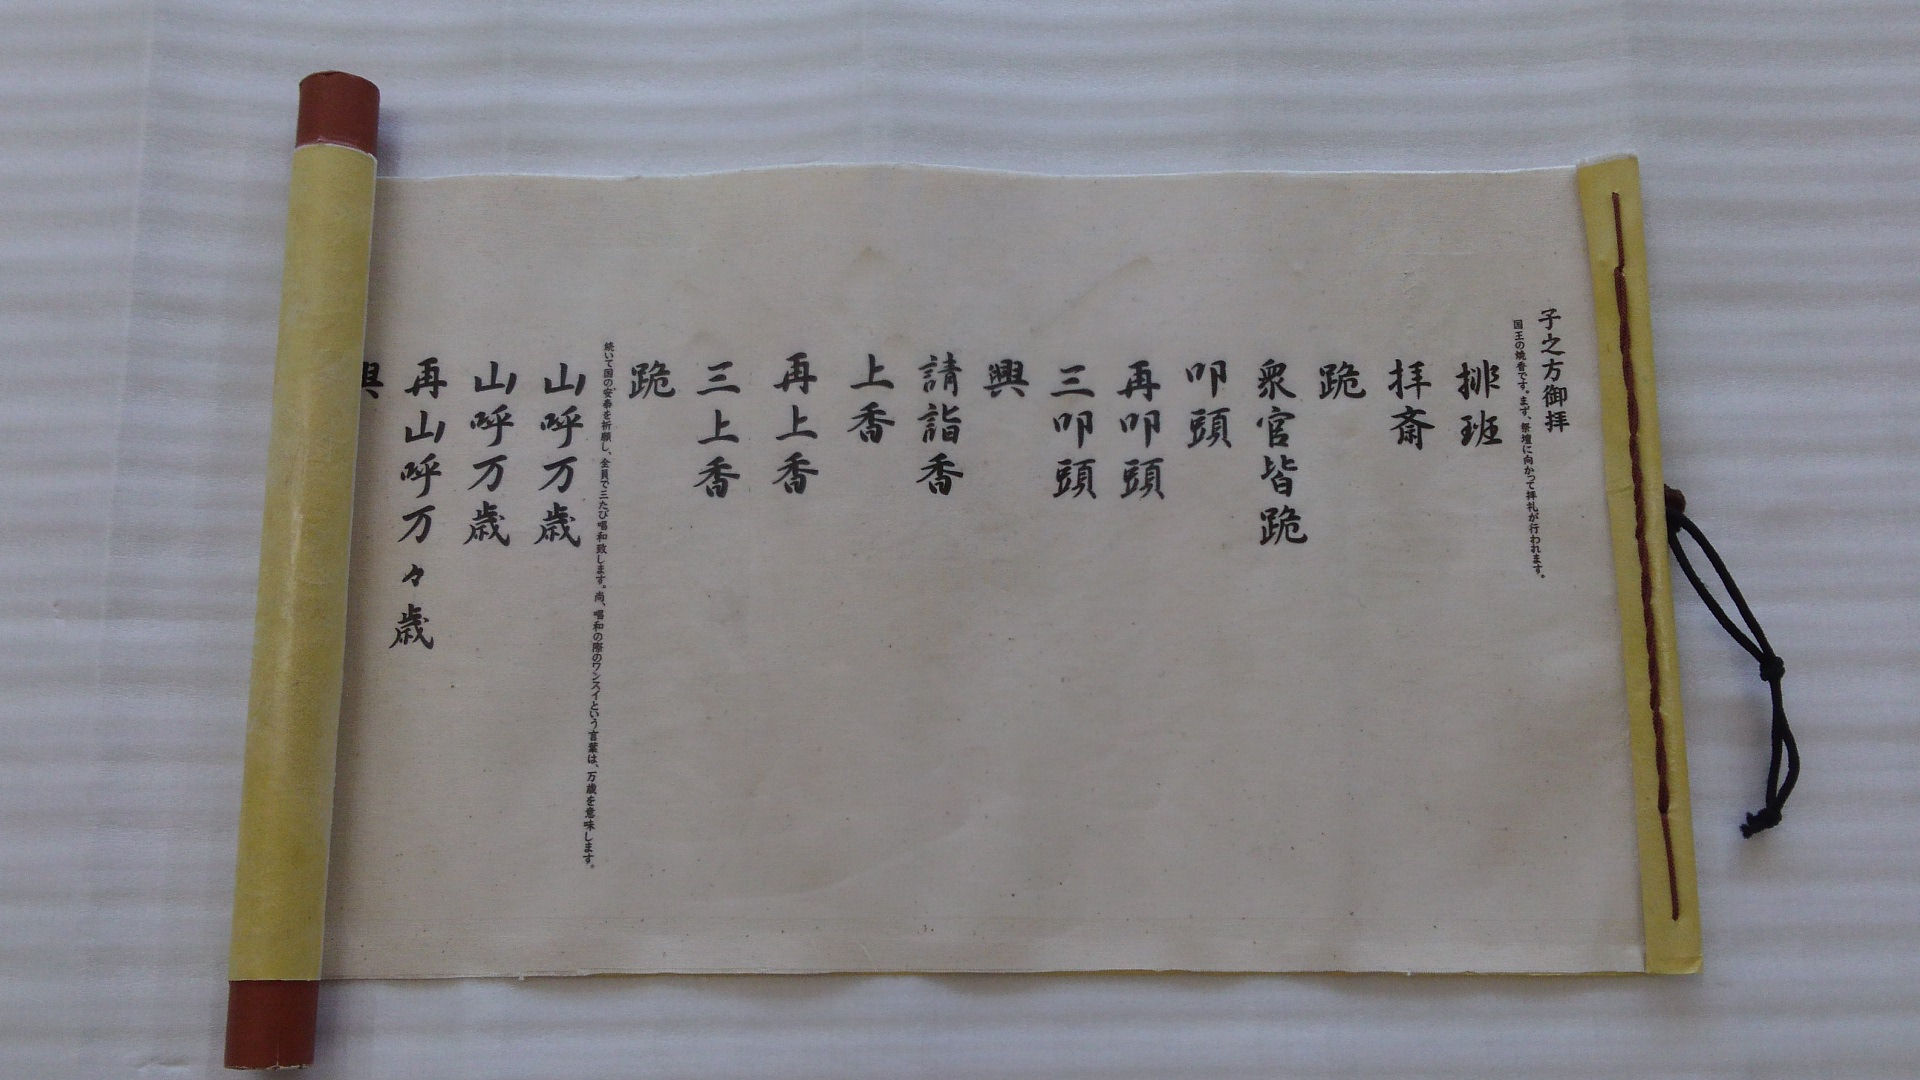 子之方御拝
国王の焼香です。まず、祭壇に向かって拝礼が行われます。
排班
拝斎
跪
衆官皆跪
叩頭
再叩頭
三叩頭
興
請詣香
上香
再上香
三上香
跪
続いて国の安泰を祈願し、全員で三たび唱和致します。尚、唱和の際のワンスイという言葉は、万歳を意味します。
山呼万歳
山呼万歳
再山呼万々歳
興